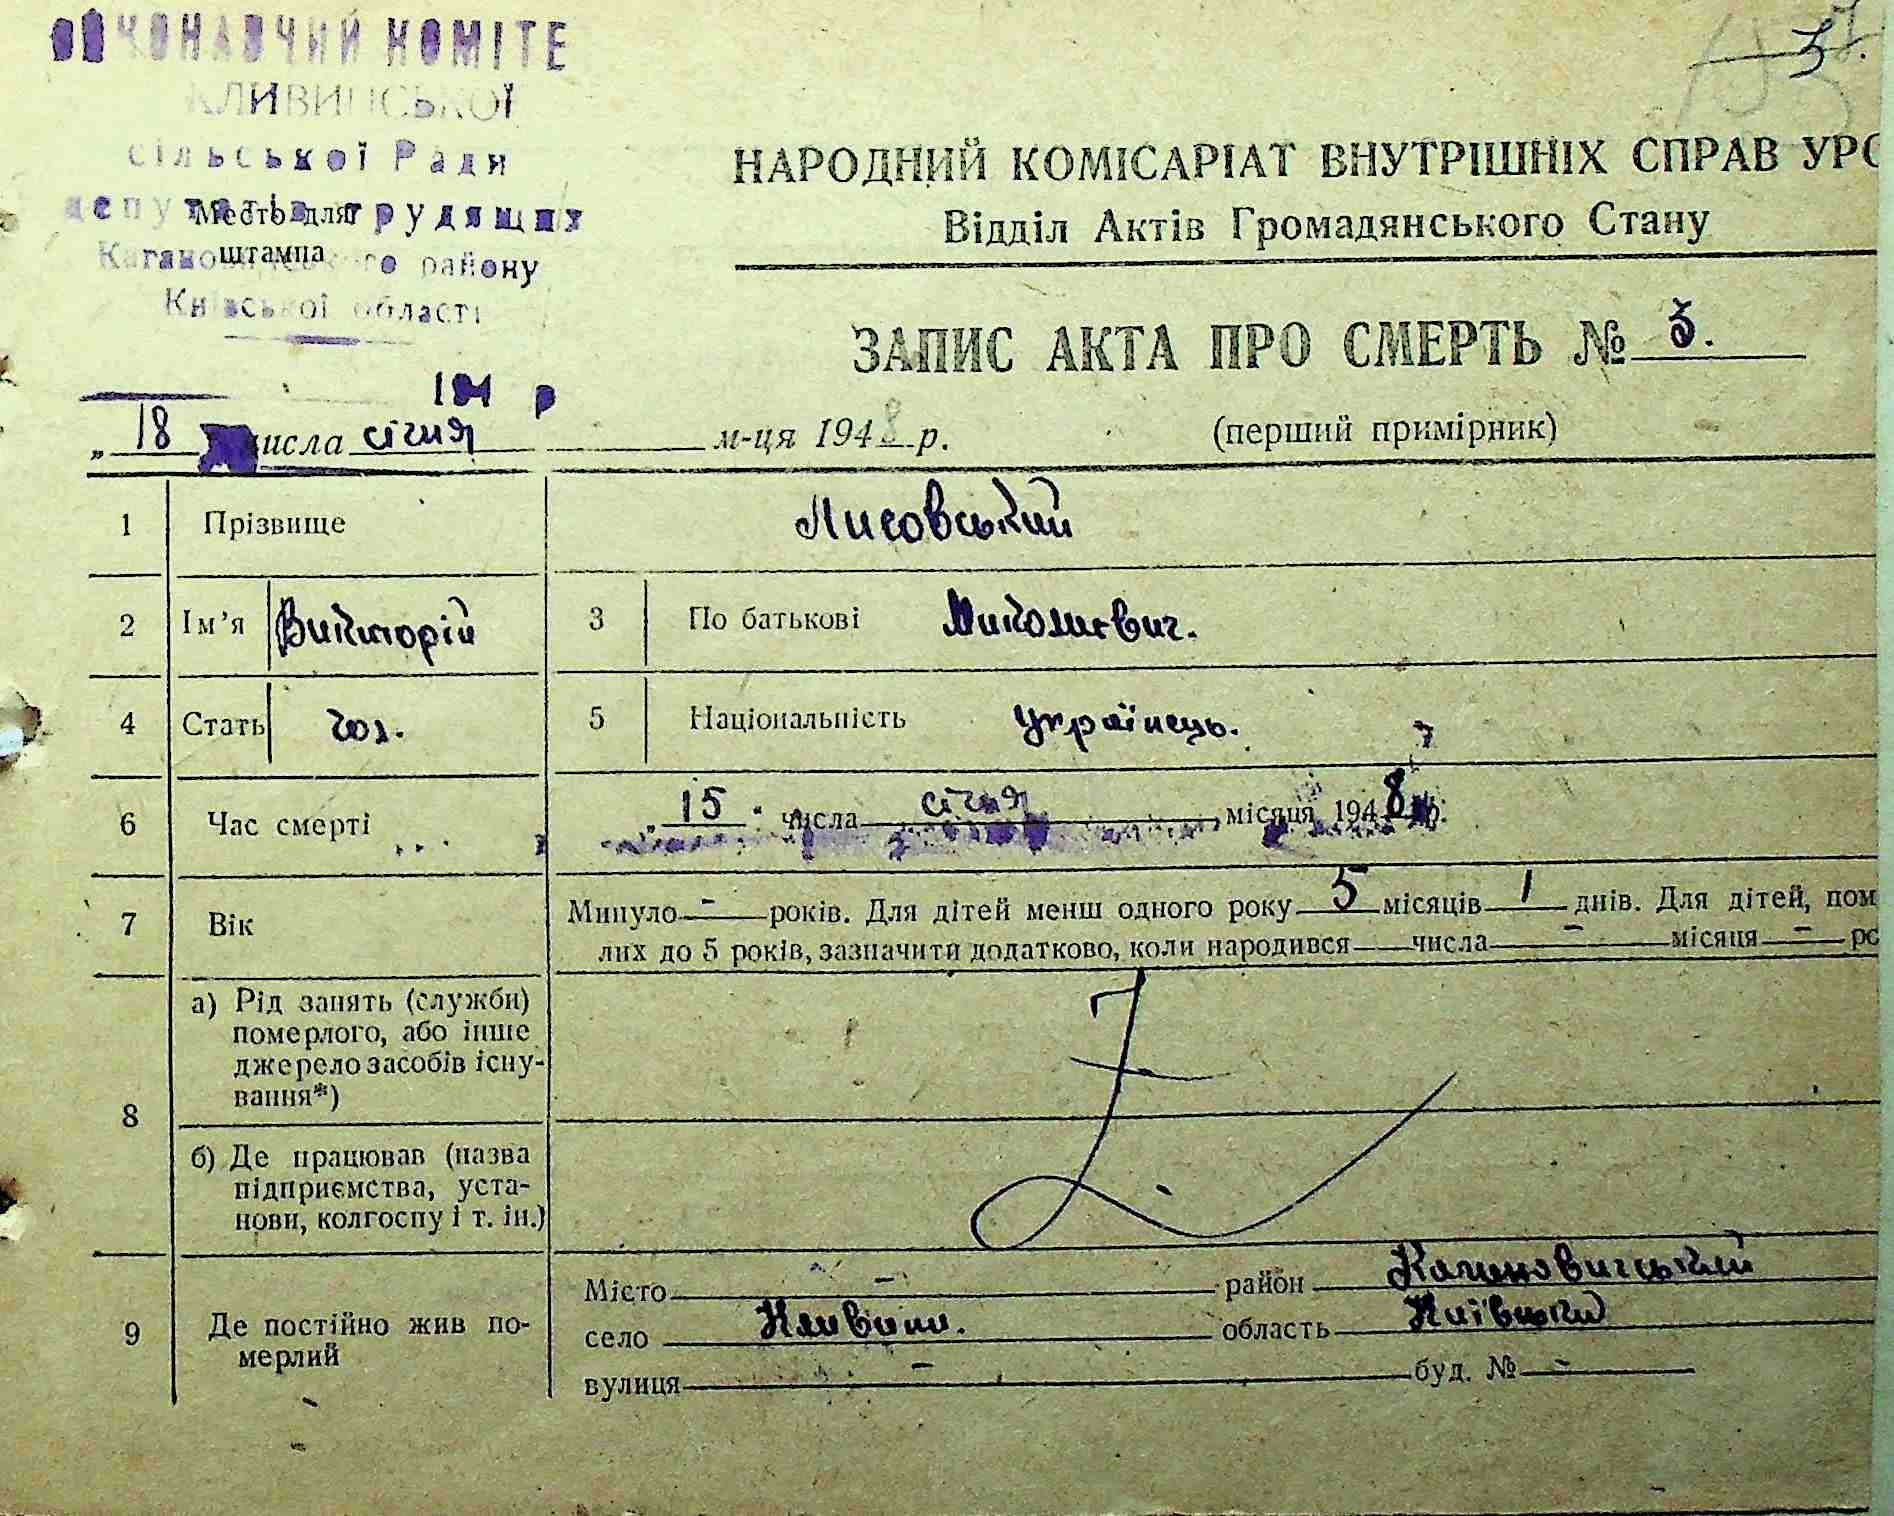 ВИКОНАВЧИЙ КОМІТЕ
КЛИВИНСЬКОЇ
сільської Ради
депутатів трудящих
Кагановичського району
Київської області
Место для
штампа
5
НАРОДНИЙ КОМІСАРІАТ ВНУТРІШНІХ СПРАВ УРС
Відділ Актів Громадянського Стану
ЗАПИС АКТА ПРО СМЕРТЬ № 3.
194 р
„ 18 числа січня м-ця 1948 р. (перший примірник)
1 Прізвище Лисовський
2 Ім’я Викторій 3 По батькові Миколаєвич.
4 Стать чол. 5 Національність українець.
6 Час смерті „ 15 " числа січня місяця 1948 р.
7 Вік Минуло - років. Для дітей менш одного року 5 місяців 1 днів. Для дітей, пом
лих до 5 років, зазначити додатково, коли народився числа - місяця - ро
8 а) Рід занять (служби)
померлого, або інше
джерело засобів існу-
вання*)
б) Де працював (назва
підприємства, уста-
нови, колгоспу і т. ін.)
9 Де постійно жив по-
мерлий
Місто - район Кагановичський
село Кливини. область Київський
вулиця - буд. № -